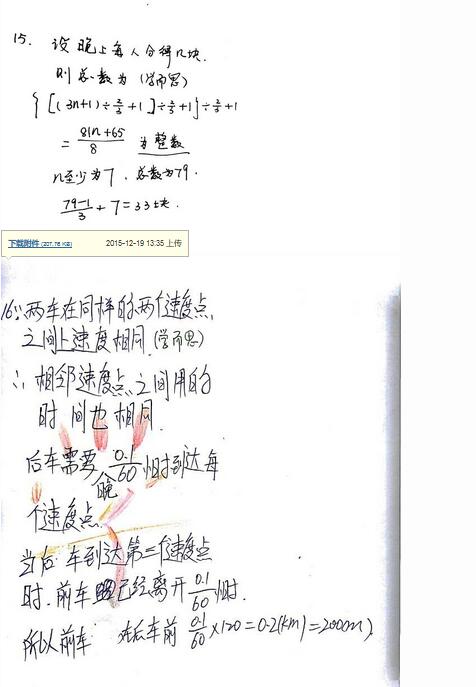 15. 设晚上每人分得n块.
则总数为 (学而思)
{[(3n+1)÷2/3+1]÷2/3+1}÷2/3+1
= 81n+65/8 为整数
n至少为7. 总数为79.
79-1/3+7=33块.
下载附件 (207.76 KB) 2015-12-19 13:35 上传
16∵两车在同样的两个速度点
之间速度相同 (学而思)
∴相邻速度点之间用的
时间也相同.
后车需要晚0.1/60小时到达每
个速度点.
当后车到达第三个速度点
时.前车已经离开0.1/60小时.
所以前车 在后车前 0.1/60×120=0.2(km)=200(m)